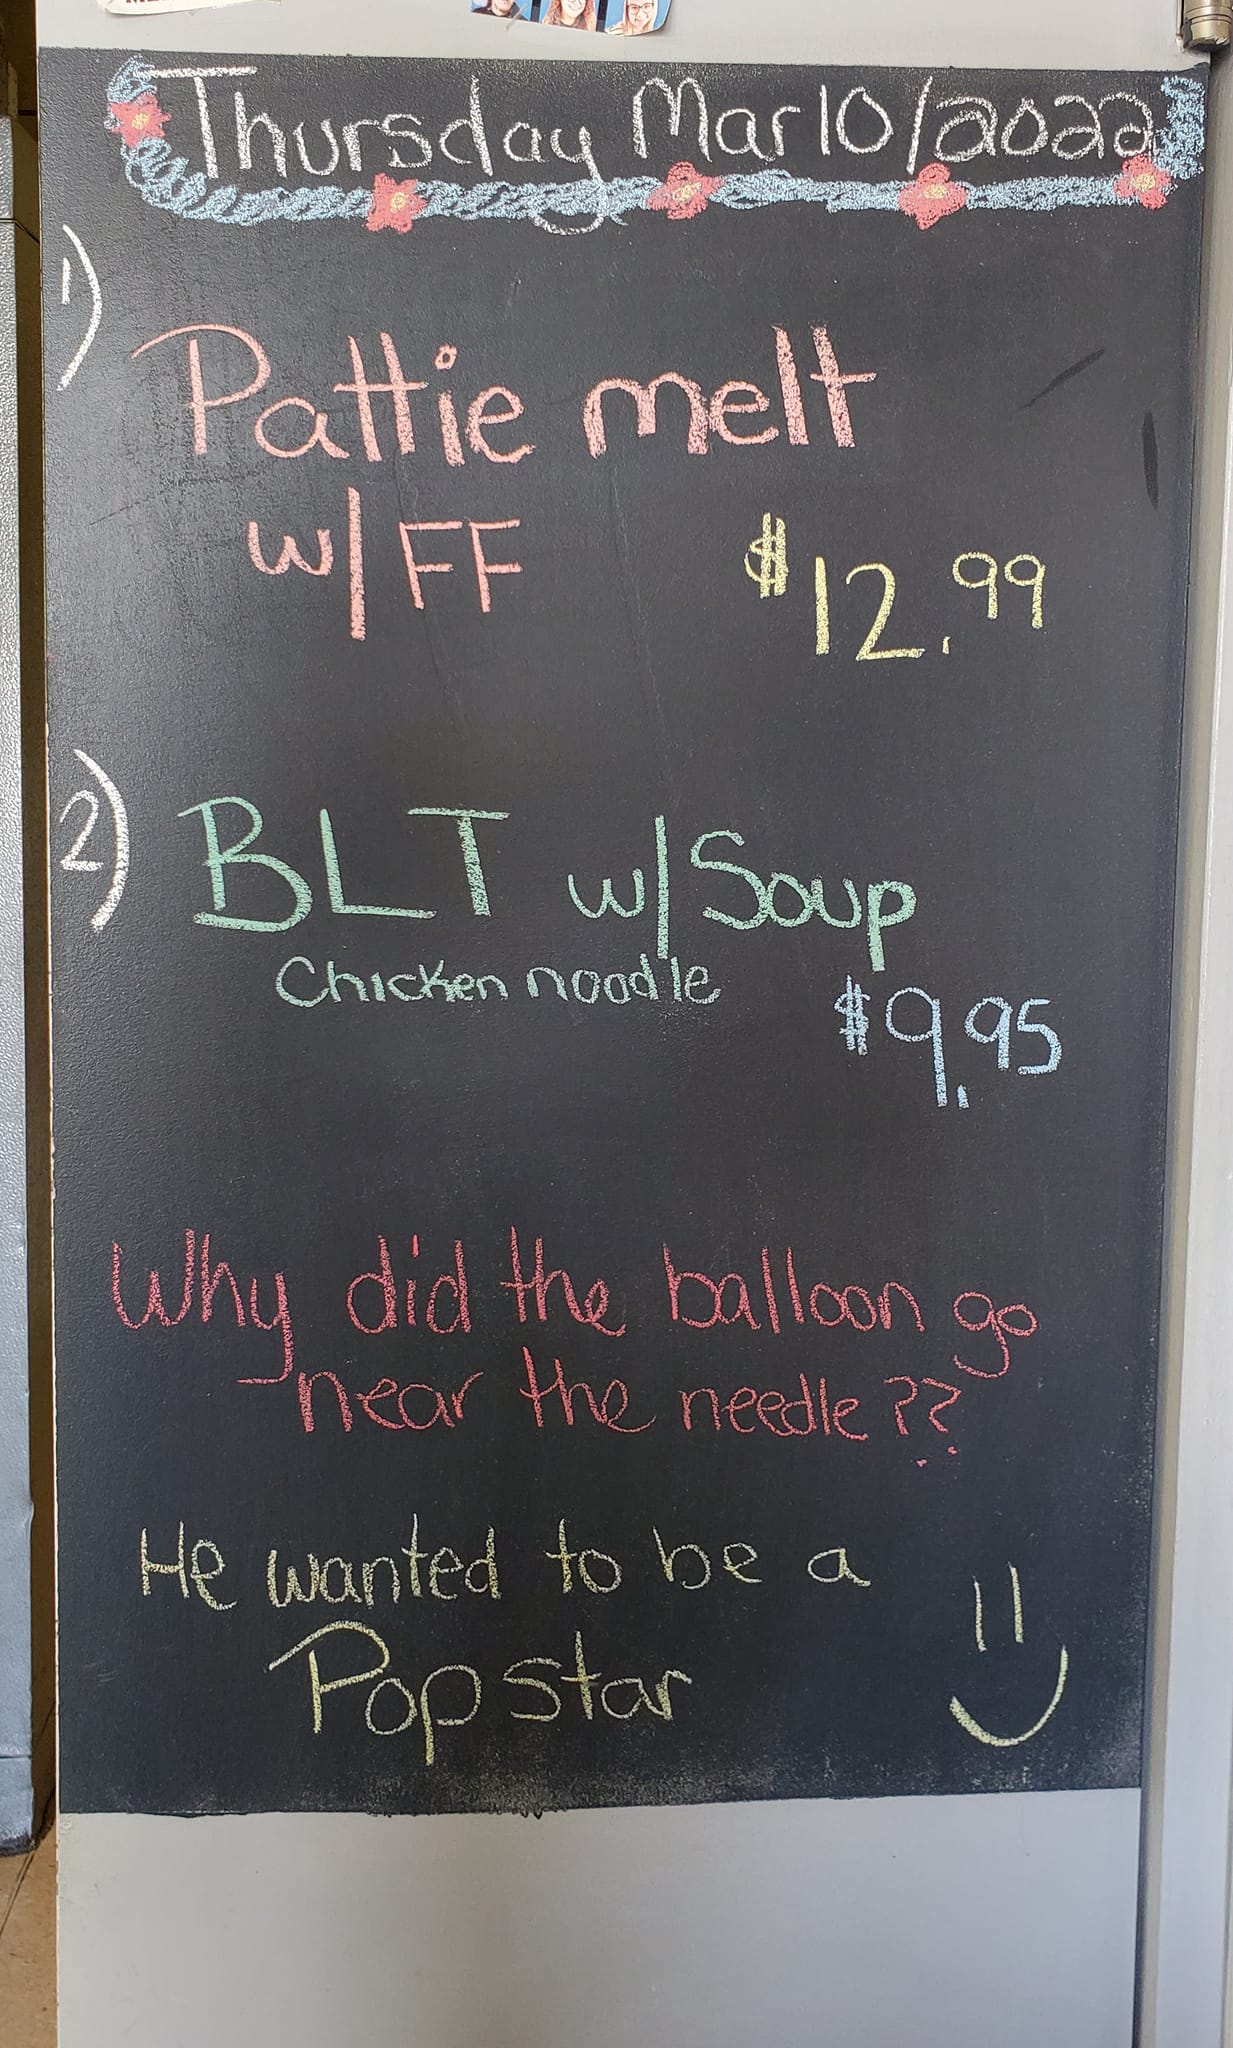 Thursday Mar 10/2022
1)
Pattie melt
w/ FF $12.99
2) BLT w/ Soup
Chicken noodle
$9.95
Why did the balloon go
near the needle??
He wanted to be a
Pop star